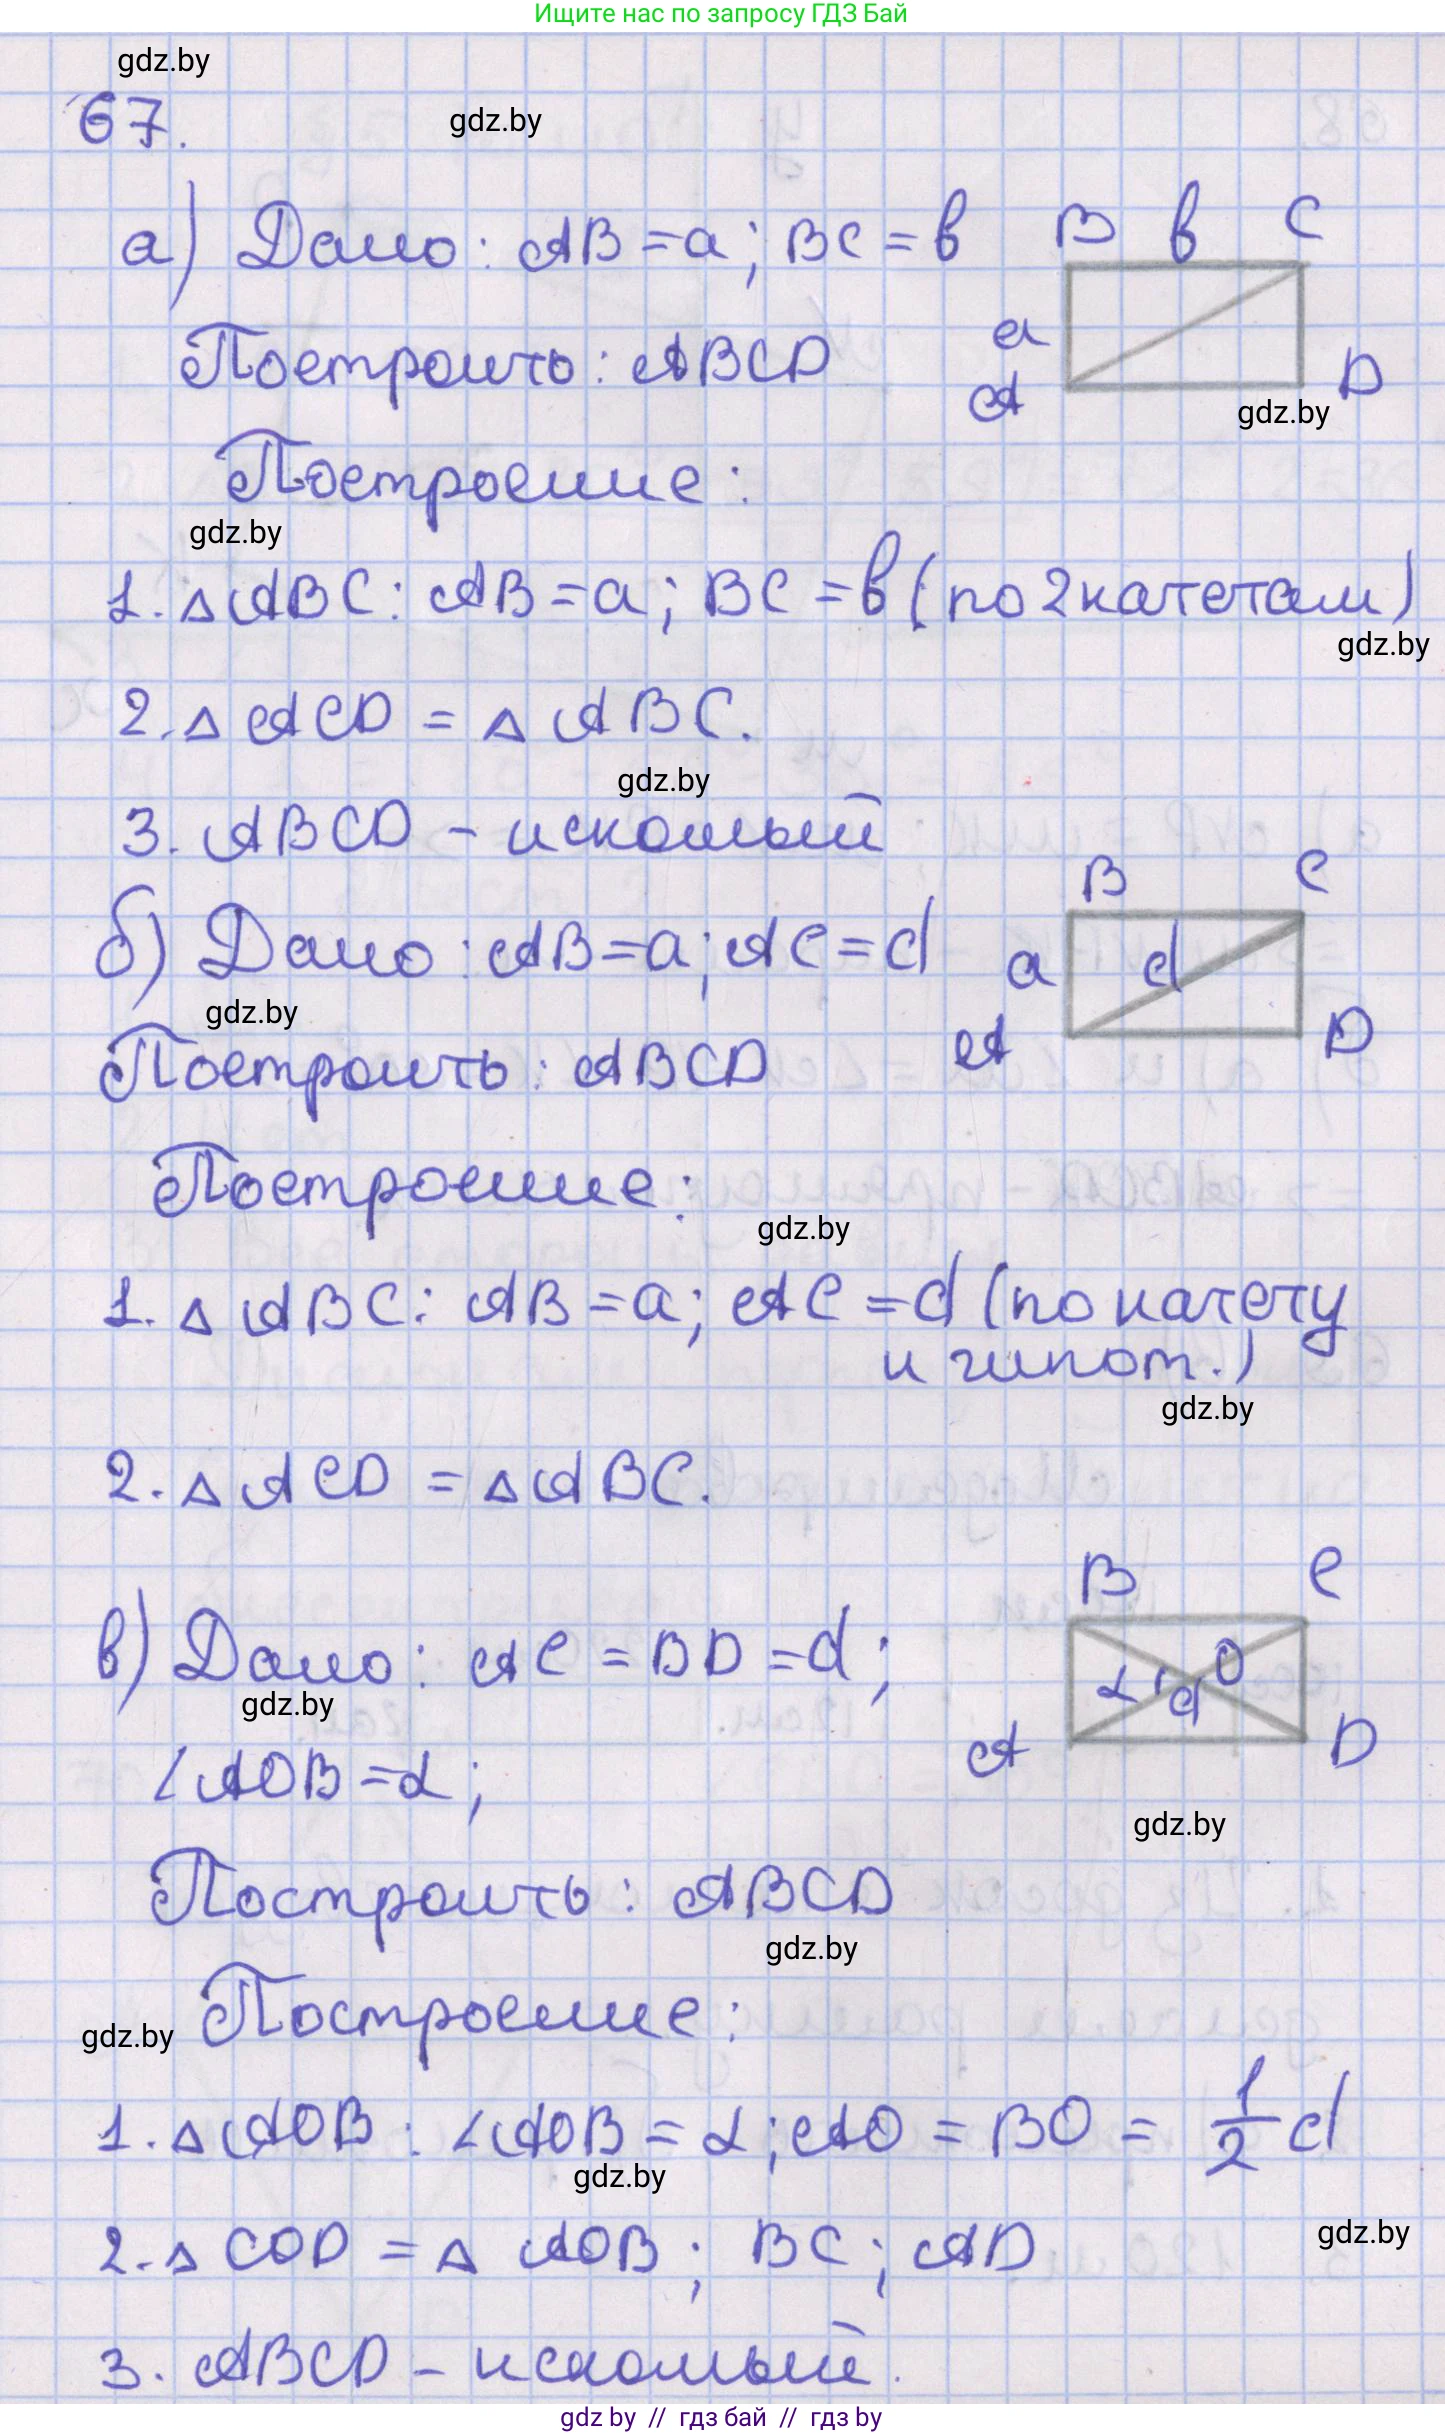 Ищите нас по запросу ГДЗ Бай
gdz.by
67.
gdz.by
а) Дано: AB = a; BC = b
B b C
a
A D
gdz.by
Построить: ABCD
Построение:
gdz.by
1. △ ABC: AB = a; BC = b (по 2 катетам)
gdz.by
2. △ ACD = △ ABC.
gdz.by
3. ABCD - искомый
б) Дано: AB = a; AC = d
B C
a d
A D
gdz.by
Построить: ABCD
Построение:
gdz.by
1. △ ABC: AB = a; AC = d (по катету
и гипот.)
gdz.by
2. △ ACD = △ ABC.
в) Дано: AC = BD = d;
B C
α d O
A D
gdz.by
∠AOB = α;
gdz.by
Построить: ABCD
gdz.by
Построение:
gdz.by
1. △ AOB: ∠AOB = α; AO = BO = 1/2 d
gdz.by
2. △ COD = △ AOB; BC; AD
gdz.by
3. ABCD - искомый.
gdz by // гдз бай // гдз by